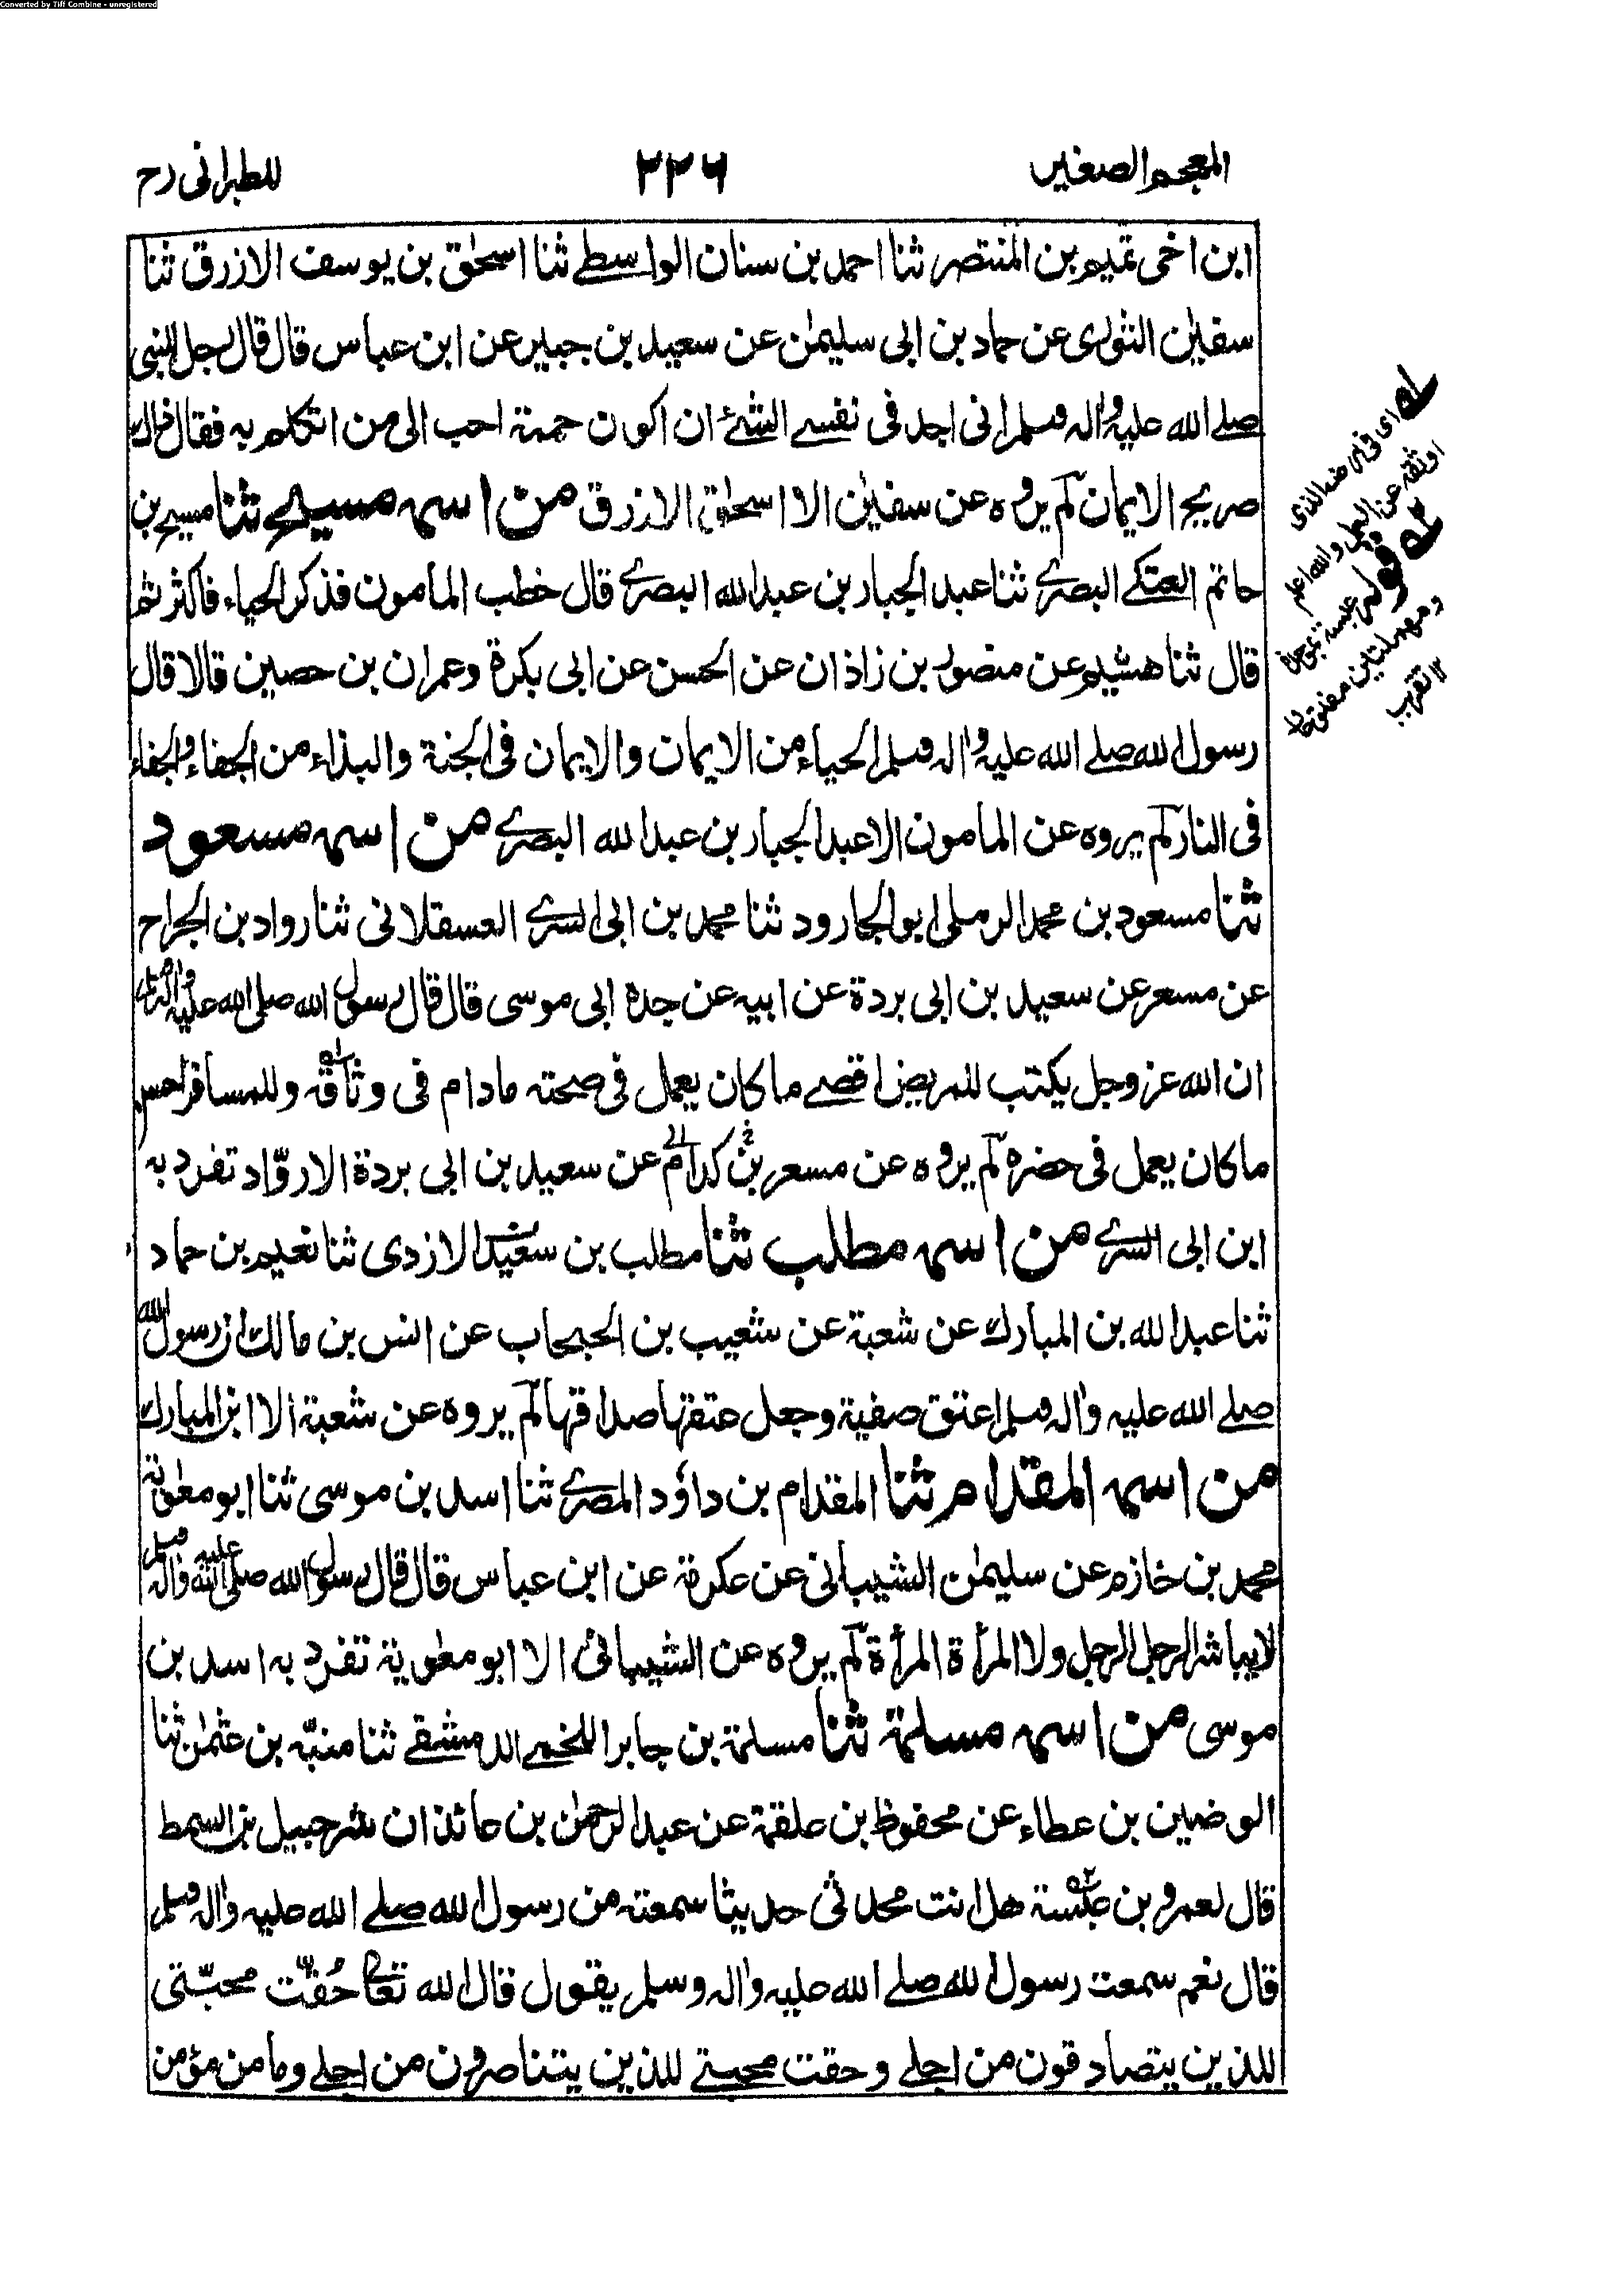 Converted by Tiff Combine - unregistered
المعجم الصغير
٢٢٦
للطبرانى رح
ابن اخى تميم بن المنتصر ثنا احمد بن سنان الواسطے ثنا اسحٰق بن يوسف الازرق ثنا
سفيٰن الثورى عن حماد بن ابى سليمٰن عن سعيد بن جبير عن ابن عباس قال قال رجل للنبى
صلے الله عليه واٰله وسلم انى اجد فى نفسے الشئ ان اكون حممة احب الى من اتكلم به فقال ذلك
صريح الايمان لم يروه عن سفيٰن الا اسحٰق الازرق من اسمه مسيح ثنا مسيح بن
حاتم العتكے البصرے ثنا عبد الجبار بن عبد الله البصرے قال خطب المامون فذكر الحياء فاكثر ثم
قال ثنا هشيم عن منصور بن زاذان عن الحسن عن ابى بكرة وعمران بن حصين قالا قال
رسول الله صلے الله عليه واٰله وسلم الحياء من الايمان والايمان فى الجنة والبذاء من الجفاء والجفاء
فى النار لم يروه عن المامون الا عبد الجبار بن عبد الله البصرے من اسمه مسعود
ثنا مسعود بن محمد الرملى ابو الجارود ثنا محمد بن ابى السرے العسقلانى ثنا رواد بن الجراح
عن مسعر عن سعيد بن ابى بردة عن ابيه عن جده ابى موسى قال قال رسول الله صلى الله عليه واٰله وسلم
ان الله عز وجل يكتب للمريض اقصے ما كان يعمل فى صحته مادام فى وثاقه وللمسافر احسن
ما كان يعمل فى حضره لم يروه عن مسعر بن كدام عن سعيد بن ابى بردة الا روّاد تفرد به
ابن ابى السرے من اسمه مطلب ثنا مطلب بن شعيب الازدى ثنا نعيم بن حماد
ثنا عبد الله بن المبارك عن شعبة عن شعيب بن الحبحاب عن انس بن مالك ان رسول الله
صلے الله عليه واٰله وسلم اعتق صفية وجعل عتقها صداقها لم يروه عن شعبة الا ابن المبارك
من اسمه المقدام ثنا المقدام بن داؤد المصرے ثنا اسد بن موسى ثنا ابو معٰوية
محمد بن خازم عن سليمٰن الشيبانى عن عكرمة عن ابن عباس قال قال رسول الله صلى الله عليه واٰله وسلم
لا يباشر الرجل الرجل ولا المرأة المرأة لم يروه عن الشيبانى الا ابو معٰوية تفرد به اسد بن
موسى من اسمه مسلمة ثنا مسلمة بن جابر اللخمے الدمشقے ثنا منبّه بن عثمٰن ثنا
الوضين بن عطاء عن محفوظ بن علقمة عن عبد الرحمٰن بن عائذ ان شرحبيل بن السمط
قال لعمرو بن عبسة هل انت محدثى حديثا سمعته من رسول الله صلے الله عليه واٰله وسلم
قال نعم سمعت رسول الله صلے الله عليه واٰله وسلم يقول قال الله تعالىٰ حُقّت محبّتى
للذين يتصادقون من اجلے وحقت محبتے للذين يتناصرون من اجلے وما من مؤمن
اى فى مرضه الذى
اوثقه عن العمل والله اعلم
قوله عبسة بموحدة
ومهملتين مفتوحا
١٢ تقريب